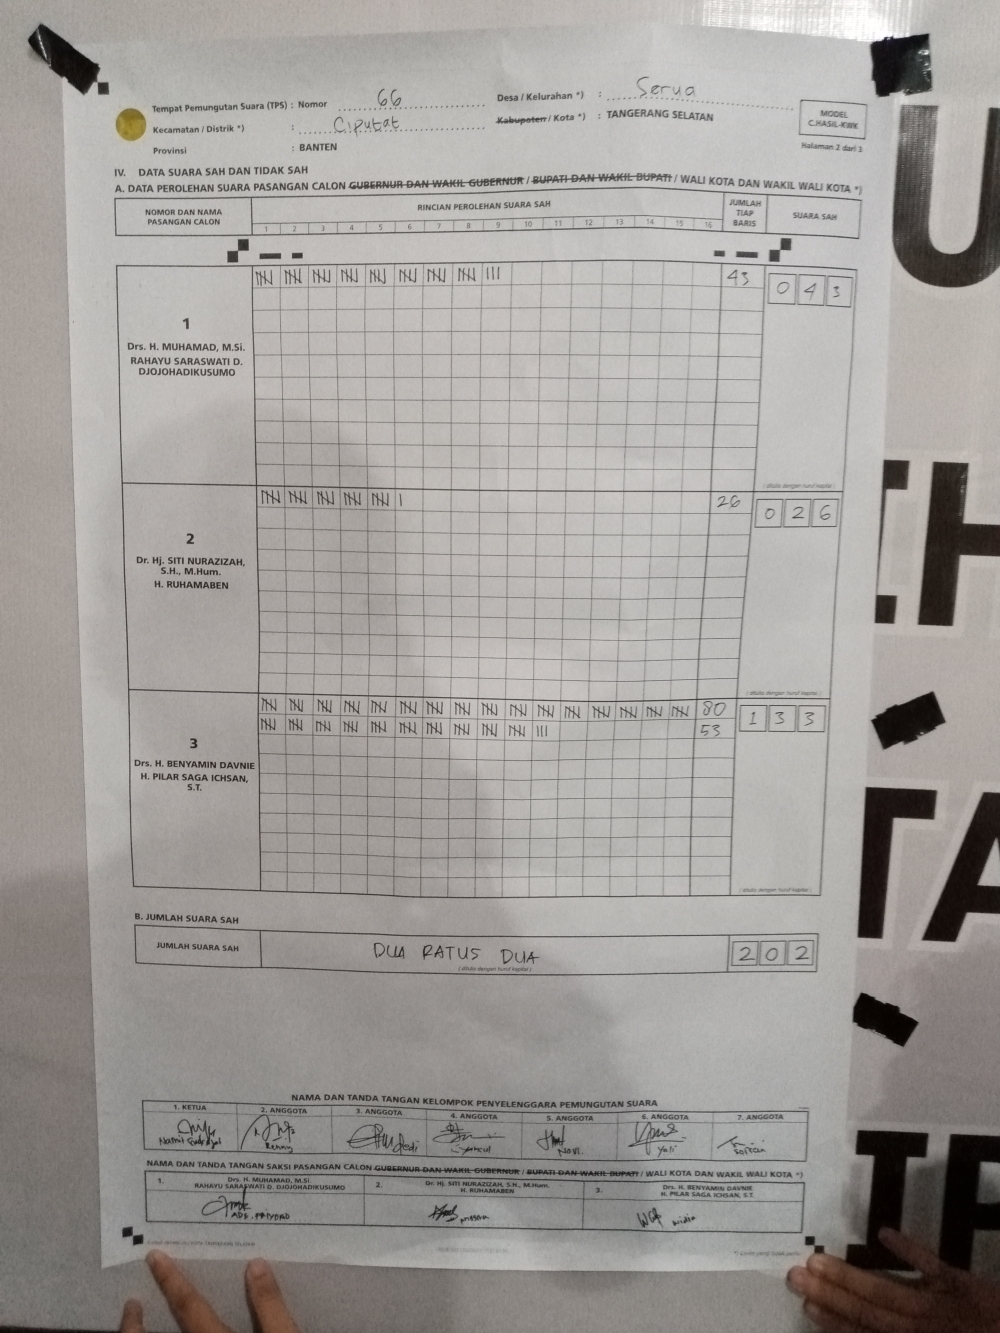 Tempat Pemungutan Suara (TPS) : Nomor 66
Desa / Kelurahan *) : Serua
Kecamatan / Distrik *) : Ciputat
Kabupaten / Kota *) : TANGERANG SELATAN
Provinsi : BANTEN
MODEL
C.HASIL-KWK
Halaman 2 dari 3
IV. DATA SUARA SAH DAN TIDAK SAH
A. DATA PEROLEHAN SUARA PASANGAN CALON GUBERNUR DAN WAKIL GUBERNUR / BUPATI DAN WAKIL BUPATI / WALI KOTA DAN WAKIL WALI KOTA *)
NOMOR DAN NAMA PASANGAN CALON
RINCIAN PEROLEHAN SUARA SAH
JUMLAH TIAP BARIS
SUARA SAH
1 2 3 4 5 6 7 8 9 10 11 12 13 14 15 16
1
Drs. H. MUHAMAD, M.Si.
RAHAYU SARASWATI D.
DJOJOHADIKUSUMO
43
0 4 3
( ditulis dengan huruf kapital )
2
Dr. Hj. SITI NURAZIZAH,
S.H., M.Hum.
H. RUHAMABEN
26
0 2 6
( ditulis dengan huruf kapital )
3
Drs. H. BENYAMIN DAVNIE
H. PILAR SAGA ICHSAN,
S.T.
80
53
1 3 3
( ditulis dengan huruf kapital )
B. JUMLAH SUARA SAH
JUMLAH SUARA SAH
DUA RATUS DUA
( ditulis dengan huruf kapital )
2 0 2
NAMA DAN TANDA TANGAN KELOMPOK PENYELENGGARA PEMUNGUTAN SUARA
1. KETUA 2. ANGGOTA 3. ANGGOTA 4. ANGGOTA 5. ANGGOTA 6. ANGGOTA 7. ANGGOTA
Novi. Yuli
NAMA DAN TANDA TANGAN SAKSI PASANGAN CALON GUBERNUR DAN WAKIL GUBERNUR / BUPATI DAN WAKIL BUPATI / WALI KOTA DAN WAKIL WALI KOTA *)
1. Drs. H. MUHAMAD, M.Si.
RAHAYU SARASWATI D. DJOJOHADIKUSUMO
2. Dr. Hj. SITI NURAZIZAH, S.H., M.Hum.
H. RUHAMABEN
3. Drs. H. BENYAMIN DAVNIE
H. PILAR SAGA ICHSAN, S.T.
U
IH
TA